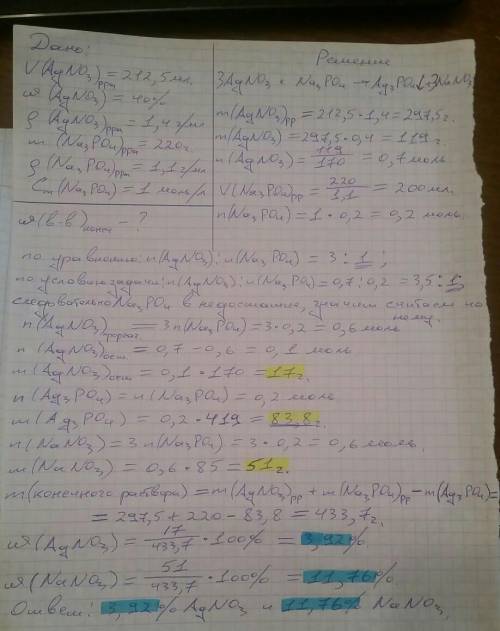 Дано:
V(AgNO₃)ррa = 212,5 мл.
ω(AgNO₃) = 40%
ρ(AgNO₃)ррa = 1,4 г/мл
m(Na₃PO₄)ррa = 220г.
ρ(Na₃PO₄)ррa = 1,1г/мл
Cm(Na₃PO₄) = 1 моль/л
ω(в-в)конеч - ?
Решение
3AgNO₃ + Na₃PO₄ → Ag₃PO₄↓+3NaNO₃
m(AgNO₃)рр = 212,5·1,4 = 297,5г.
m(AgNO₃) = 297,5·0,4 = 119г.
n(AgNO₃) = 119/170 = 0,7 моль
V(Na₃PO₄)рр = 220/1,1 = 200мл.
n(Na₃PO₄) = 1·0,2 = 0,2 моль.
по уравнению: n(AgNO₃):n(Na₃PO₄) = 3:1;
по условию задачи: n(AgNO₃):n(Na₃PO₄) = 0,7:0,2 = 3,5:1;
следовательно Na₃PO₄ в недостатке, значит считаем по
нему.
n(AgNO₃)прореаг. = 3n(Na₃PO₄) = 3·0,2 = 0,6 моль
n(AgNO₃)ост. = 0,7 - 0,6 = 0,1 моль
m(AgNO₃)ост = 0,1·170 = 17г.
n(Ag₃PO₄) = n(Na₃PO₄) = 0,2 моль
m(Ag₃PO₄) = 0,2·419 = 83,8г.
n(NaNO₃) = 3n(Na₃PO₄) = 3·0,2 = 0,6 моль.
m(NaNO₃) = 0,6·85 = 51г.
m(конечного раствора) = m(AgNO₃)рр + m(Na₃PO₄)рр - m(Ag₃PO₄)=
= 297,5 + 220 - 83,8 = 433,7г.
ω(AgNO₃) = 17/433,7 · 100% = 3,92%.
ω(NaNO₃) = 51/433,7 · 100% = 11,76%
Ответ: 3,92% AgNO₃ и 11,76% NaNO₃.